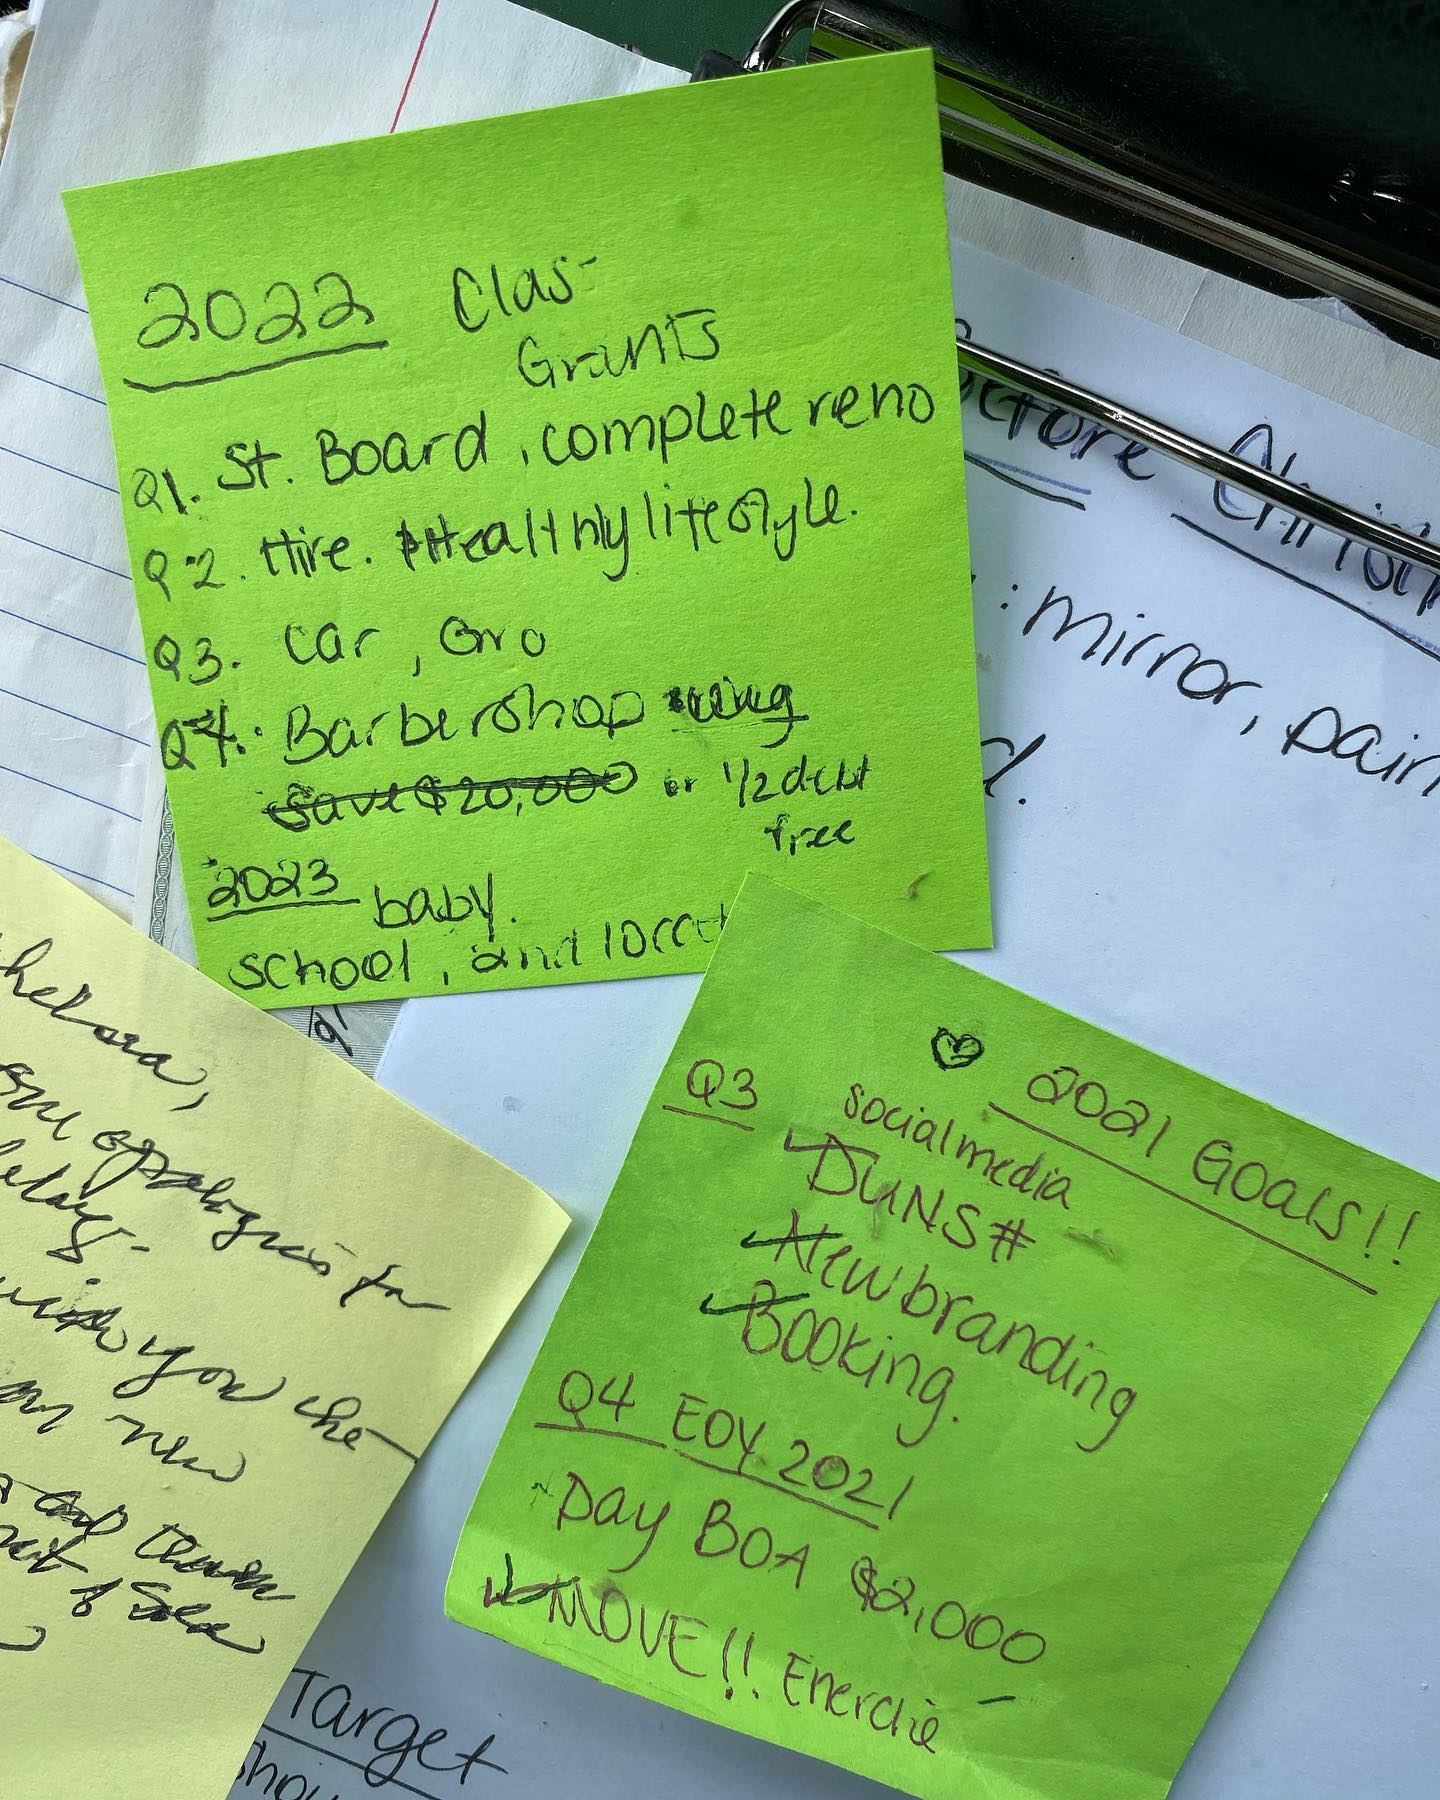 2022 Clas-
Grants
Q1. St. Board, complete reno
Q2. Hire. Healthy lifestyle.
Q3. Car, Gro
Q4. Barbershop
Save $20,000 or 1/2 debt
free
2023 baby.
school, 2nd loc
Before
: mirror, pain
d.
helsea,
apologies for
delay-
wish you the
new
and
Target
♡ 2021 GOALS!!
Q3 socialmedia
DUNS#
New branding
Booking.
Q4 EOY 2021
Pay BOA $2,000
MOVE!! Enerchie